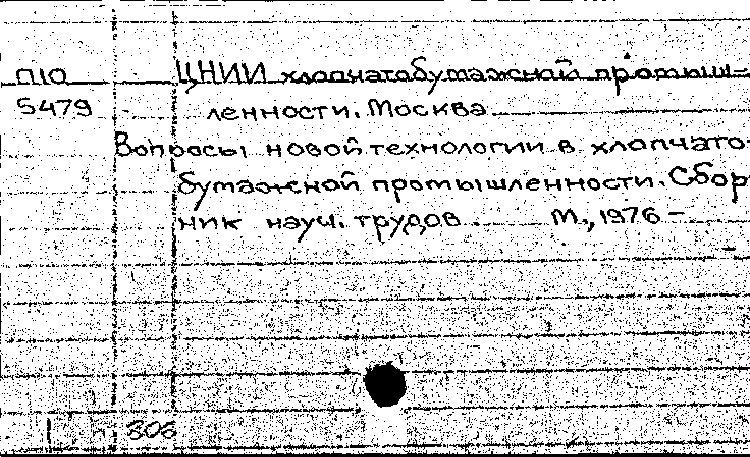 П10 ЦНИИ хлопчатобумажной промыш-
5479 ленности. Москва.
Вопросы новой технологии в хлопчато-
бумажной промышленности. Сбор-
ник науч. трудов. М., 1976 –
306